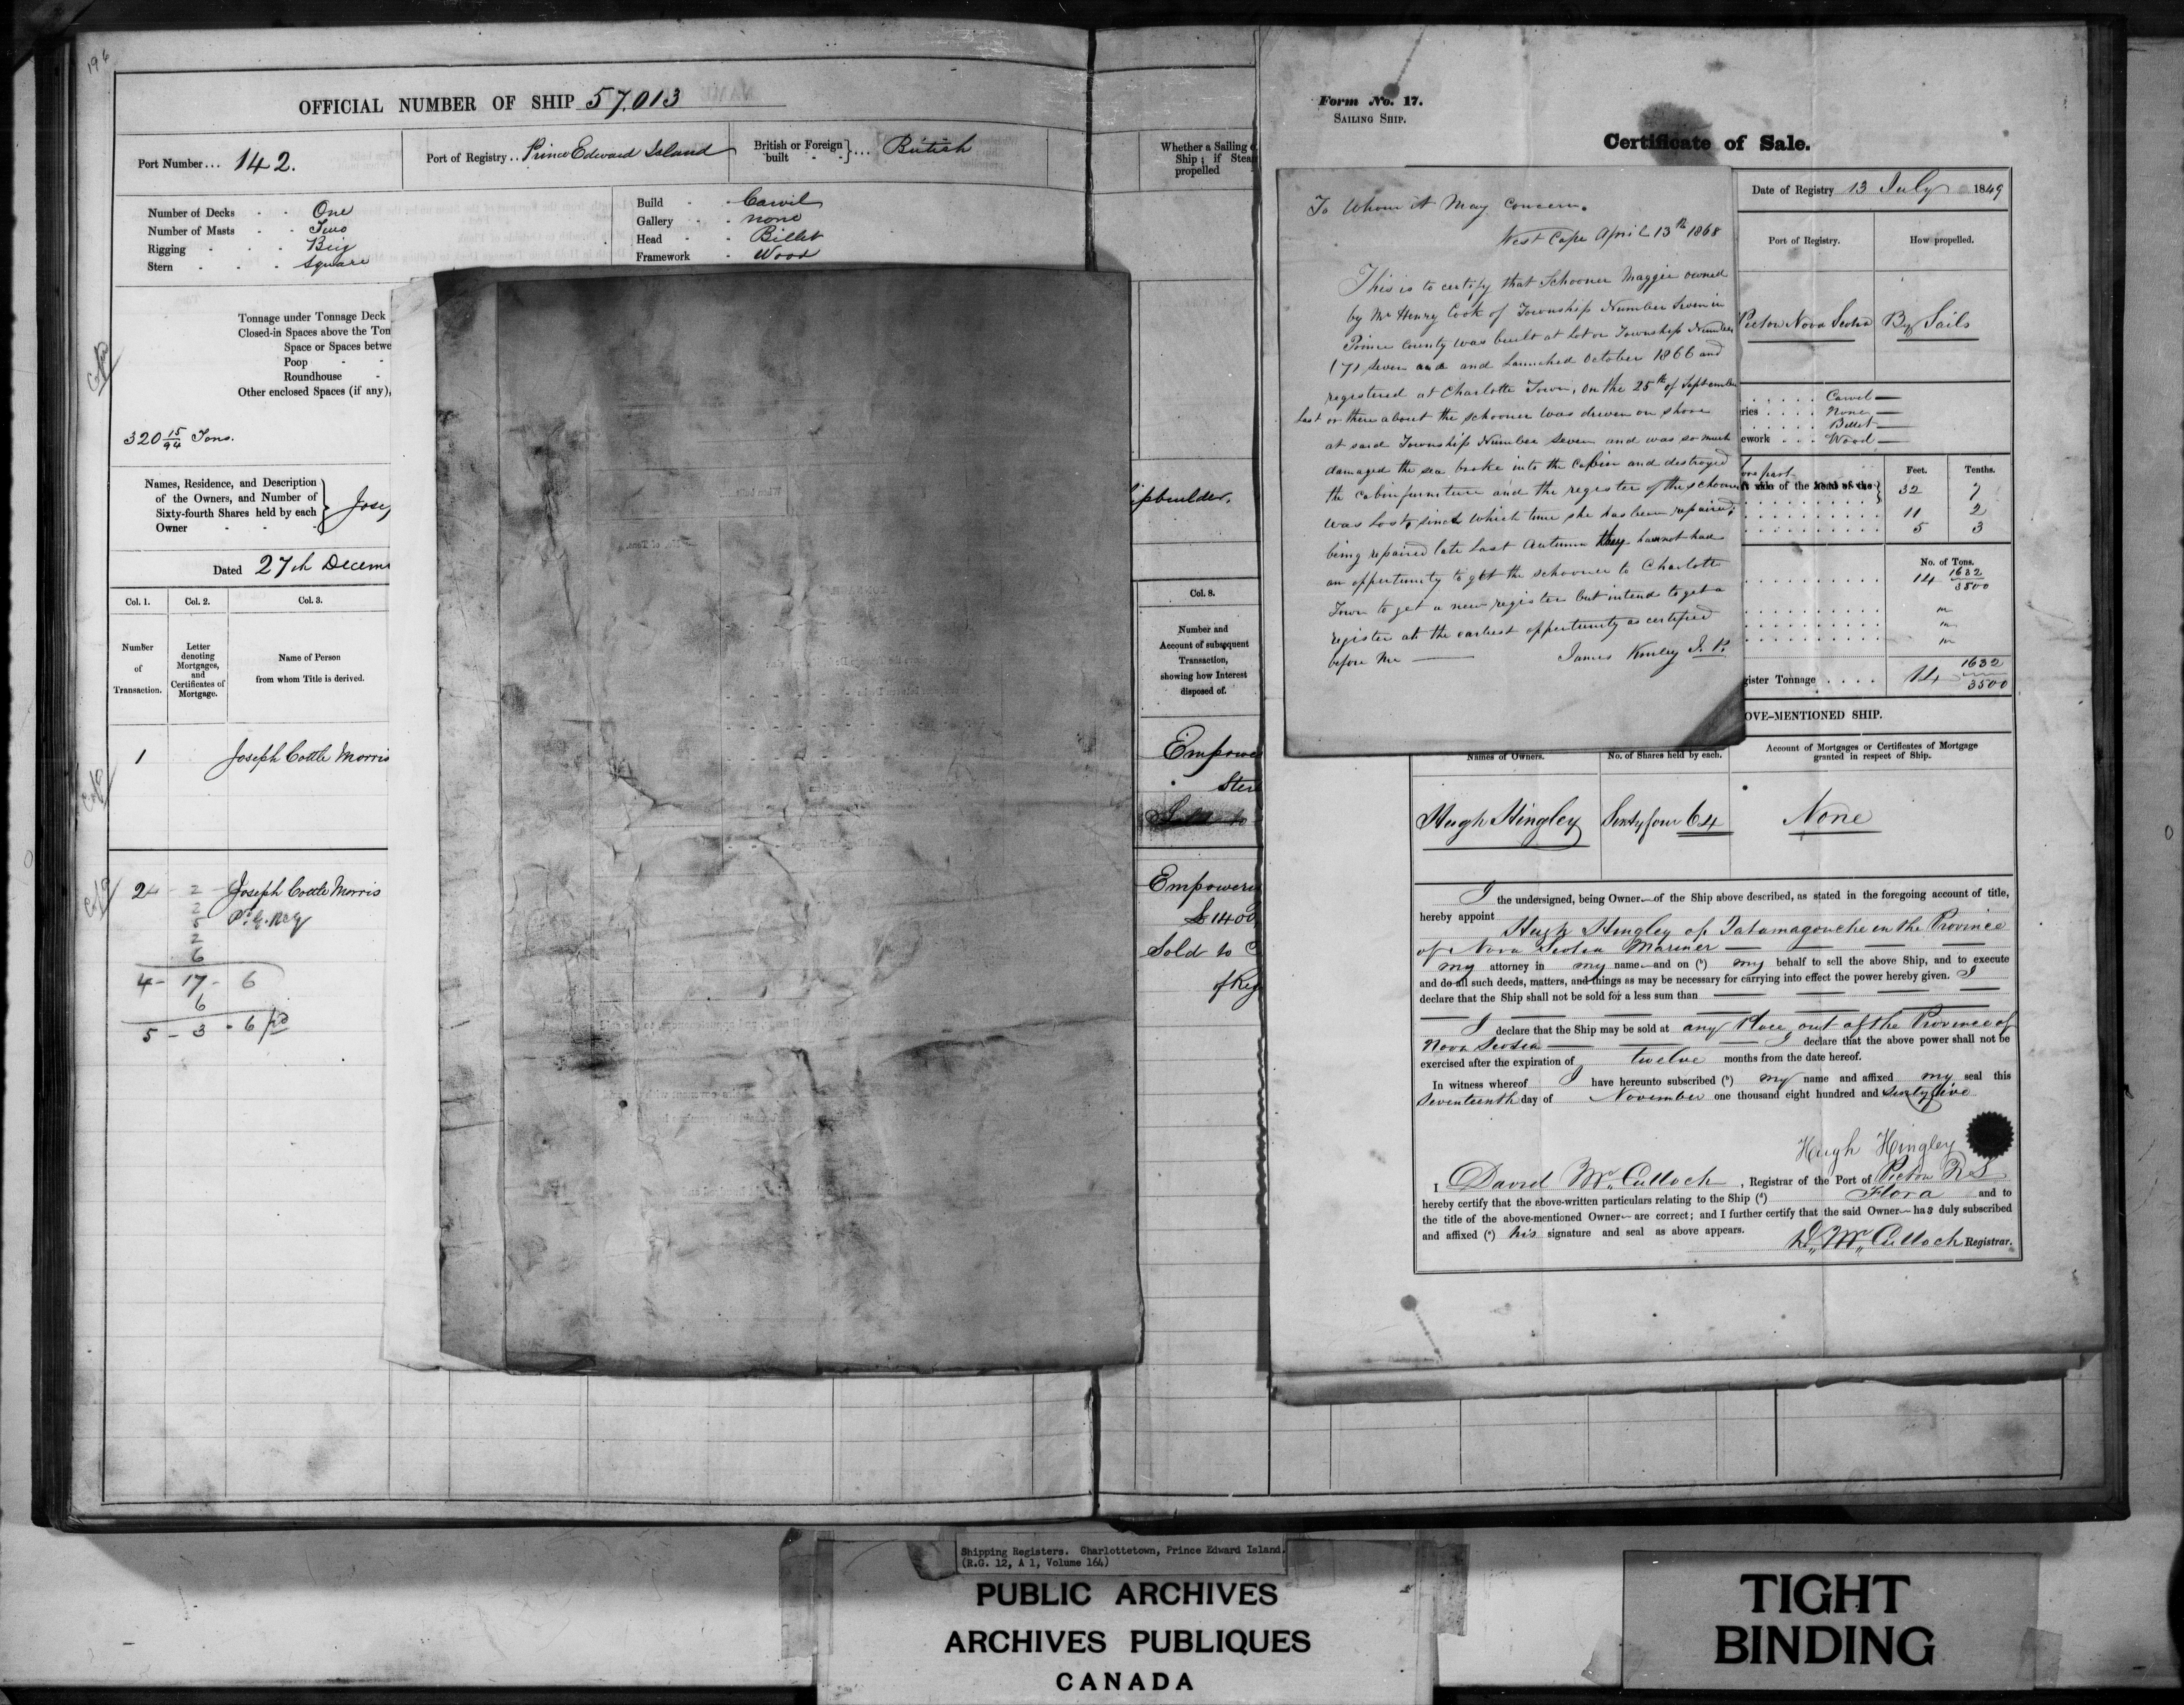 196
OFFICIAL NUMBER OF SHIP 57,013
Port Number... 142.
Port of Registry.. Prince Edward Island
British or Foreign built } ... British
Number of Decks - - One
Number of Masts - - Two
Rigging - - - Brig
Stern - - - - Square
Build - - Carvil
Gallery - - none
Head - - Billet
Framework - Wood
Tonnage under Tonnage Deck
Closed-in Spaces above the Ton
Space or Spaces betwe
Poop - -
Roundhouse -
Other enclosed Spaces (if any),
320 15/94 Tons.
Names, Residence, and Description
of the Owners, and Number of
Sixty-fourth Shares held by each
Owner - - -
Jose
Dated 27th Decem
Col. 1. Col. 2. Col. 3.
Number of Transaction.
Letter denoting Mortgages, and Certificates of Mortgage.
Name of Person from whom Title is derived.
1 Joseph Cottle Morris
2 Joseph Cottle Morris
2
2
5
2
6
4 - 17 - 6
6
5 - 3 - 6 pd
Whether a Sailing o
Ship; if Stea
propelled
ipbuilder.
Col. 8.
Number and
Account of subsequent
Transaction,
showing how Interest
disposed of.
Empowe
Ster
Sold to
Empowere
£1400
Sold to C
of Reg
Form No. 17.
SAILING SHIP.
Certificate of Sale.
To Whom it May Concern.
West Cape April 13th 1868
This is to certify that Schooner Maggie owned
by Mr Henry Cook of Township Number Seven in
Prince County was built at Lot or Township Number
(7) seven and and Launched October 1866 and
registered at Charlotte Town, on the 25th of September
last or there about the schooner was driven on shore
at said Township Number Seven and was so much
damaged the sea broke into the Cabin and destroyed
the cabin furniture and the register of the schooner
was Lost, since which time she has been repaired;
being repaired late last Autumn they have not had
an oppertunity to get the schooner to Charlotte
Town to get a new register but intend to get a
register at the earliest oppertunity as certified
before me — James Kinley J. P.
Date of Registry 13 July 1849
Port of Registry. How propelled.
Pictou Nova Scotia By Sails
Carvel —
ries . . . . None —
Billet —
ework . . . Wood —
Feet. Tenths.
fore part
of the head of the
32 7
11 2
5 3
No. of Tons.
14 1632/3500
gister Tonnage . . . . 14 1632/3500
OVE-MENTIONED SHIP.
Names of Owners. No. of Shares held by each. Account of Mortgages or Certificates of Mortgage
granted in respect of Ship.
Hugh Hingley Sixty four 64 None
I the undersigned, being Owner of the Ship above described, as stated in the foregoing account of title,
hereby appoint Hugh Hingley of Tatamagouche in the Province
of Nova Scotia Mariner
my attorney in my name and on (b) my behalf to sell the above Ship, and to execute
and do all such deeds, matters, and things as may be necessary for carrying into effect the power hereby given. I
declare that the Ship shall not be sold for a less sum than
I declare that the Ship may be sold at any Place out of the Province of
Nova Scotia — I declare that the above power shall not be
exercised after the expiration of twelve months from the date hereof.
In witness whereof I have hereunto subscribed (b) my name and affixed my seal this
Seventeenth day of November one thousand eight hundred and sixty five
Hugh Hingley
I David McCulloch, Registrar of the Port of Pictou N S
hereby certify that the above-written particulars relating to the Ship (d) Flora and to
the title of the above-mentioned Owner are correct; and I further certify that the said Owner has duly subscribed
and affixed (e) his signature and seal as above appears.
D. McCulloch Registrar.
Shipping Registers. Charlottetown, Prince Edward Island.
(R.G. 12, A 1, Volume 164)
PUBLIC ARCHIVES
ARCHIVES PUBLIQUES
CANADA
TIGHT
BINDING